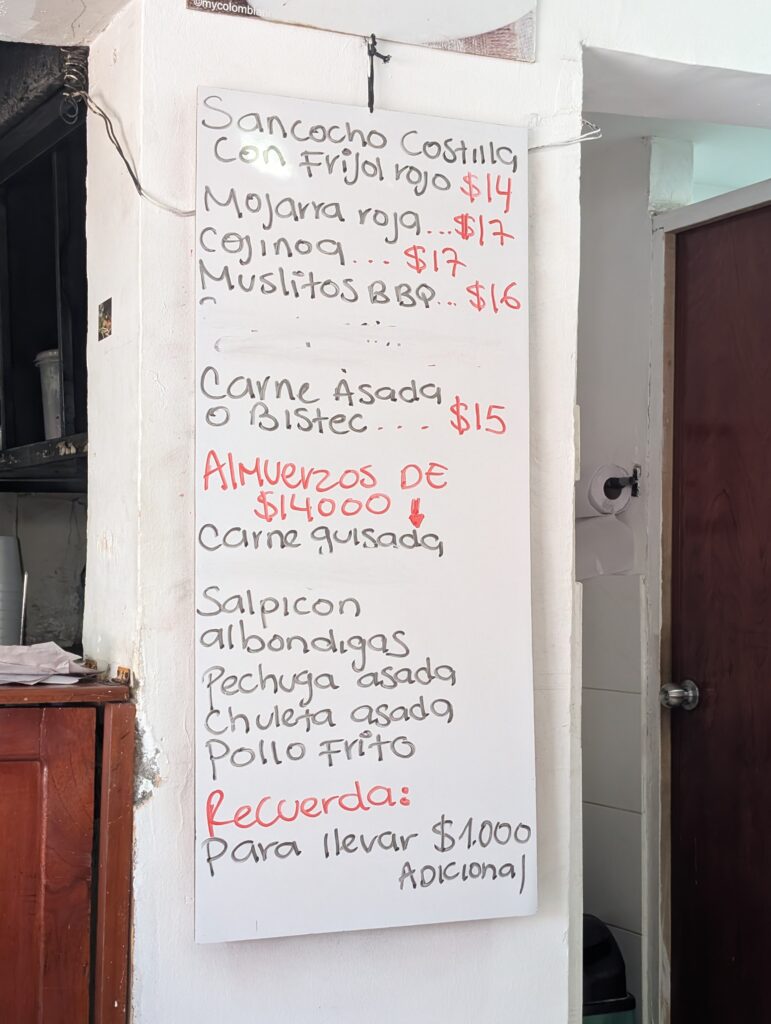 @mycolombia
Sancocho Costilla
con Frijol rojo $14
Mojarra roja...$17
cojinoa.... $17
Muslitos BBQ... $16
Carne Asada
o BisTec.... $15
Almuerzos DE
$14000 ↓
carne guisada
Salpicon
albondigas
Pechuga asada
chuleta asada
Pollo Frito
Recuerda:
Para llevar $1.000
Adicional